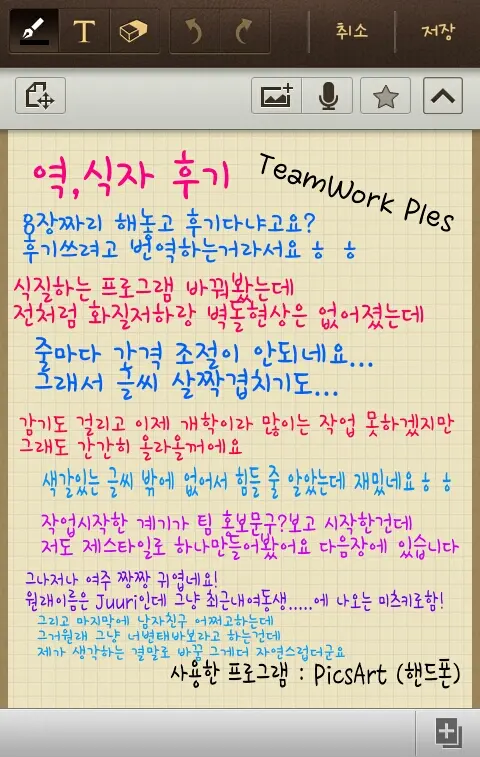 T
취소
저장
역,식자 후기
TeamWork Ples
8장짜리 해놓고 후기다냐고요?
후기쓰려고 번역하는거라서요 ㅎ ㅎ
식질하는 프로그램 바꿔봤는데
전처럼 화질저하랑 벽돌현상은 없어졌는데
줄마다 가격 조절이 안되네요...
그래서 글씨 살짝겹치기도...
감기도 걸리고 이제 개학이라 많이는 작업 못하겠지만
그래도 간간히 올라올꺼에요
색깔있는 글씨 밖에 없어서 힘들 줄 알았는데 재밌네요ㅎ ㅎ
작업시작한 계기가 팀 홍보문구?보고 시작한건데
저도 제스타일로 하나만들어봤어요 다음장에 있습니다
그나저나 여주 짱짱 귀엽네요!
원래이름은 Juuri인데 그냥 최근내여동생.....에 나오는 미츠키로함!
그리고 마지막에 남자친구 어쩌고하는데
그거원래 그냥 너변태바보라고 하는건데
제가 생각하는 결말로 바꿈 그게더 자연스럽더군요
사용한 프로그램 : PicsArt (핸드폰)